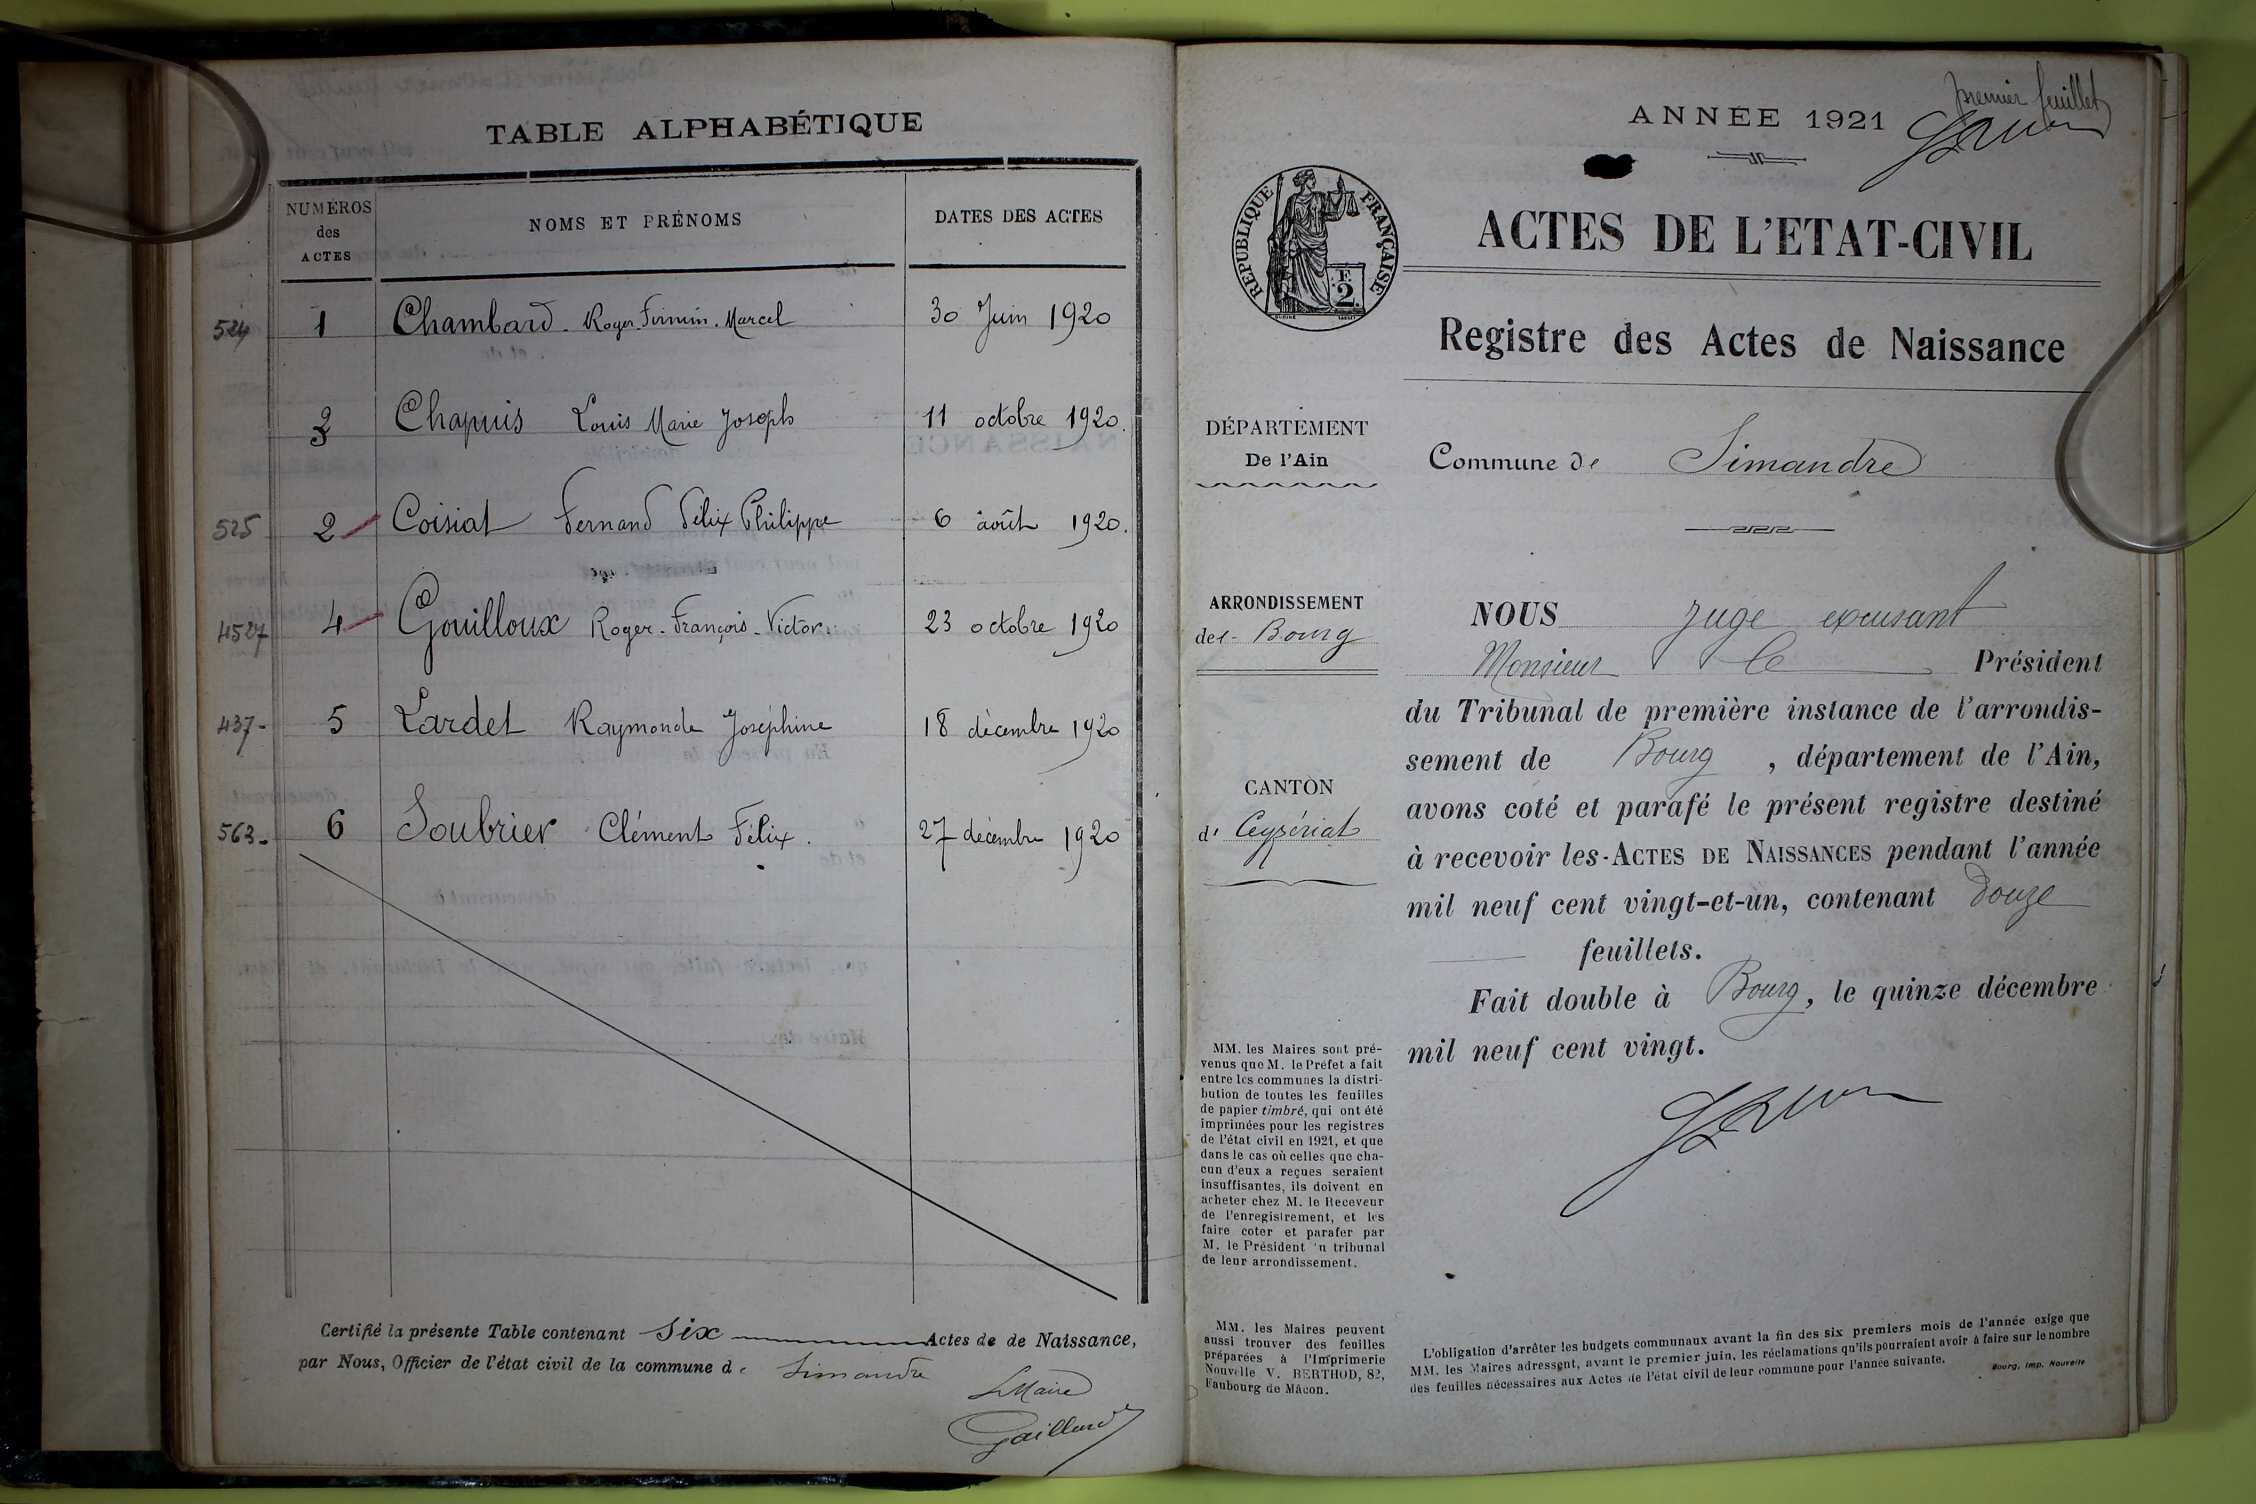 TABLE ALPHABÉTIQUE
NUMÉROS
des
ACTES
NOMS ET PRÉNOMS
DATES DES ACTES
524 1 Chambard Roger Firmin Marcel 30 Juin 1920
3 Chapuis Louis Marie Joseph 11 octobre 1920.
525 2 Coisiat Fernand Félix Philippe 6 août 1920.
4527 4 Gouilloux Roger-François-Victor 23 octobre 1920
437- 5 Lardet Raymonde Joséphine 18 décembre 1920
563- 6 Soubrier Clément Félix. 27 décembre 1920
Certifié la présente Table contenant Six Actes de de Naissance,
par Nous, Officier de l'état civil de la commune de Simandre
Le Maire
Gaillard
premier feuillet
ANNÉE 1921
RÉPUBLIQUE FRANÇAISE
F.
2
ACTES DE L'ETAT-CIVIL
Registre des Actes de Naissance
DÉPARTEMENT
De l'Ain
Commune de Simandre
ARRONDISSEMENT
de Bourg
CANTON
d' Ceyzériat
NOUS Juge excusant
Monsieur le Président
du Tribunal de première instance de l'arrondis-
sement de Bourg, département de l'Ain,
avons coté et parafé le présent registre destiné
à recevoir les-ACTES DE NAISSANCES pendant l'année
mil neuf cent vingt-et-un, contenant Douze
feuillets.
Fait double à Bourg, le quinze décembre
mil neuf cent vingt.
MM. les Maires sont pré-
venus que M. le Préfet a fait
entre les communes la distri-
bution de toutes les feuilles
de papier timbré, qui ont été
imprimées pour les registres
de l'état civil en 1921, et que
dans le cas où celles que cha-
cun d'eux a reçues seraient
insuffisantes, ils doivent en
acheter chez M. le Receveur
de l'enregistrement, et les
faire coter et parafer par
M. le Président 'u tribunal
de leur arrondissement.
MM. les Maires peuvent
aussi trouver des feuilles
préparées à l'Imprimerie
Nouvelle V. BERTHOD, 82,
Faubourg de Mâcon.
L'obligation d'arrêter les budgets communaux avant la fin des six premiers mois de l'année exige que
MM. les Maires adressent, avant le premier juin, les réclamations qu'ils pourraient avoir à faire sur le nombre
des feuilles nécessaires aux Actes de l'état civil de leur commune pour l'année suivante.
Bourg, Imp. Nouvelle